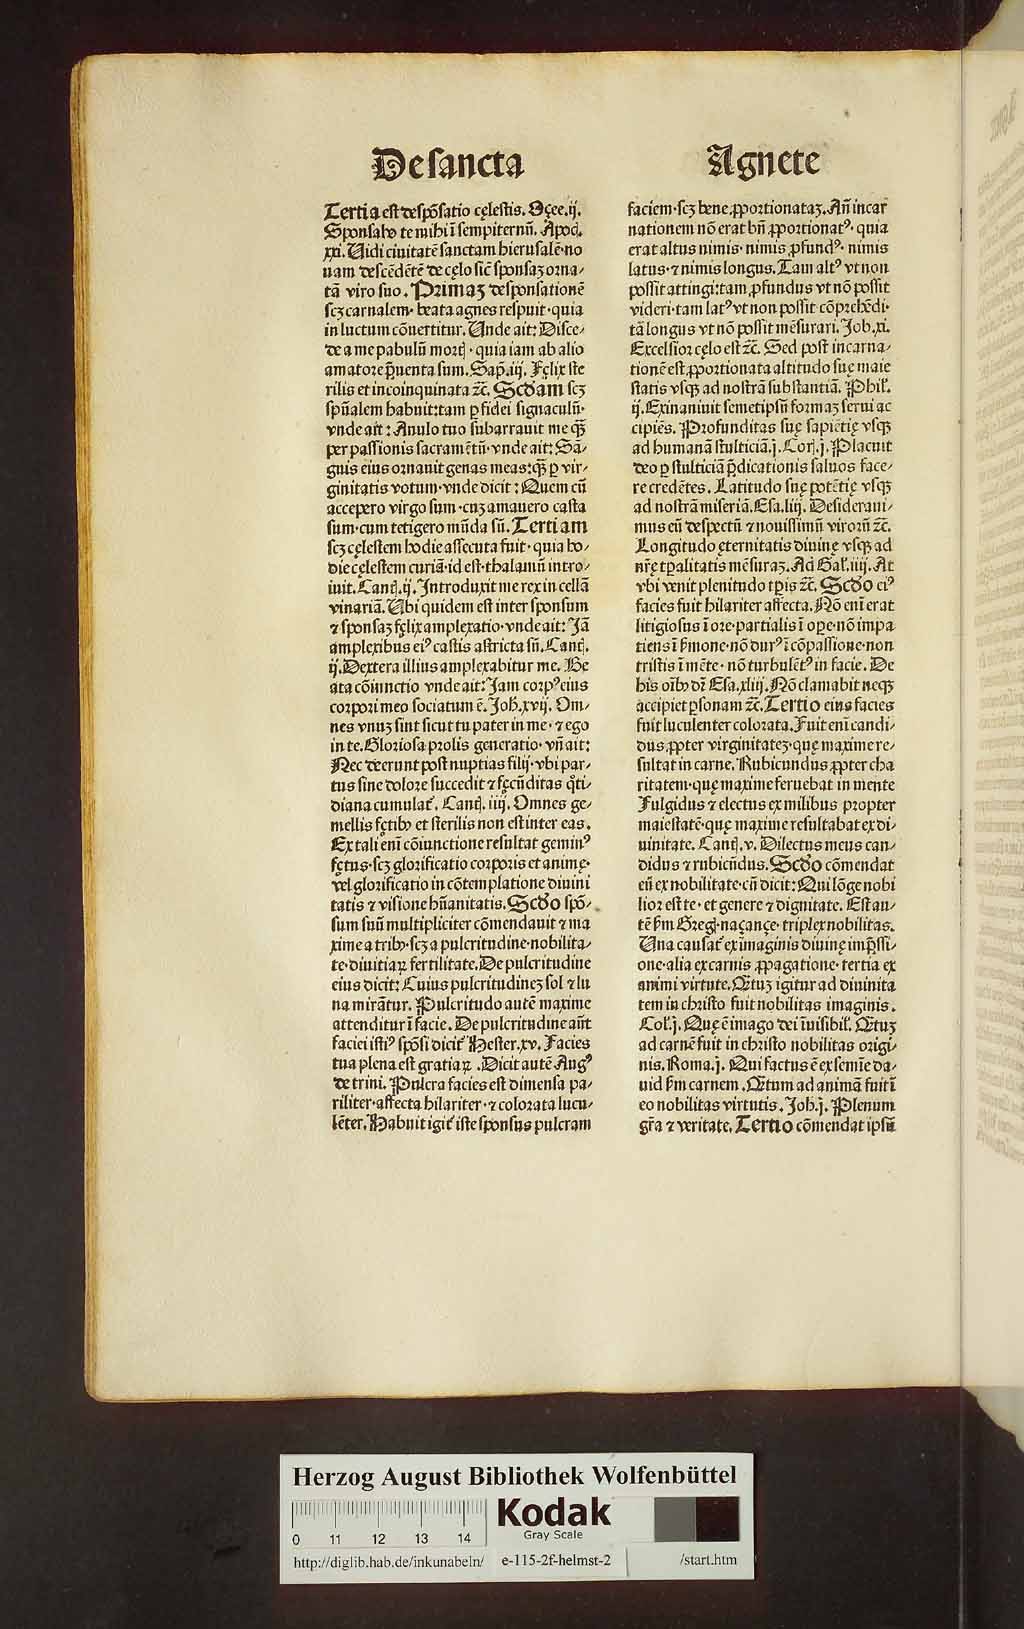 De sancta
Agnete
Tertia est despõsatio cęlestis. Oʒee. ij.
Sponsabo te mihi ĩ sempiternũ. Apoc̃.
xxi. Uidi ciuitatẽ sanctam hierusalẽ·no
uam descẽdẽtẽ de cęlo sic̃ sponsaʒ orna⸗
tã viro suo. Primaʒ desponsationẽ
scʒ carnalem· beata agnes respuit·quia
in luctum cõuertitur. Unde ait: Disce⸗
de a me pabulũ mortꝭ·quia iam ab alio
amatore p̃uenta sum. Sap̃. iij. Fęlix ste
rilis et incoinquinata ⁊c̃. Scd̃am scʒ
spũalem habuit:tam ꝑ fidei signaculũ·
vnde ait: Anulo suo subarrauit me qʒ̃
per passionis sacramẽtũ·vnde ait: Sã⸗
guis eius ornauit genas meas:qʒ̃ ꝑ vir⸗
ginitatis votum·vnde dicit: Quem cũ
accepero virgo sum·cuʒ amauero casta
sum·cum tetigero mũda sũ. Tertiam
scʒ cęlestem hodie assecuta fuit·quia ho⸗
die cęlestem curiã·id est·thalamũ intro⸗
iuit. Cantꝭ. ij. Introduxit me rex in cellã
vinariã. Ubi quidem est inter sponsum
⁊ sponsaʒ fęlix amplexatio·vnde ait: Jã
amplexibus eiꝰ castis astricta sũ. Cantꝭ.
ij. Dextera illius amplexabitur me. Be
ata cõiunctio vnde ait: Jam corpꝰ eius
corpori meo sociatum ẽ. Joh̃. xvij. Om⸗
nes vnuʒ sint sicut tu pater in me·⁊ ego
in te. Gloriosa prolis generatio·vñ ait:
Nec deerunt post nuptias filij·vbi par⸗
tus sine dolore succedit ⁊ fęcũditas q̊ti⸗
diana cumulat᷑. Cantꝭ. iiij. Omnes ge⸗
mellis fętibꝰ et sterilis non est inter eas.
Ex tali eni᷑ cõiunctione resultat geminꝰ
fętus·scʒ glorificatio corporis et animę·
vel glorificatio in cõtemplatione diuini
tatis ⁊ visione hũanitatis. Scd̃o spõ⸗
sum suũ multipliciter cõmendauit ⁊ ma
xime a tribꝰ·scʒ a pulcritudine·nobilita⸗
te·diuitiaꝝ fertilitate. De pulcritudine
eius dicit: Cuius pulcritudineʒ sol ⁊ lu
na mirãtur. Pulcritudo autẽ maxime
attenditur ĩ facie. De pulcritudine aũt
faciei istiꝰ spõsi dicit᷑ Hester. xv. Facies
tua plena est gratiaꝝ. Dicit autẽ Augꝰ
de trini. Pulcra facies est dimensa pa⸗
riliter·affecta hilariter·⁊ colorata lucu⸗
lẽter. Habuit igit᷑ iste sponsus pulcram
faciem·scʒ bene ꝓportionataʒ. Añ incar
nationem nõ erat bñ ꝓportionatꝰ·quia
erat altus nimis·nimis ꝓfundꝰ·nimis
latus·⁊ nimis longus. Tam altꝰ vt non
possit attingi:tam ꝓfundus vt nõ possit
videri·tam latꝰ vt non possit cõprehẽdi·
tã longus vt nõ possit mẽsurari. Job. xi.
Excelsior cęlo est ⁊c̃. Sed post incarna⸗
tionẽ est ꝓportionata altitudo suę maie
statis vsqʒ ad nostrã substantiã. Phil̃.
ij. Exinaniuit semetipsũ formaʒ serui ac
cipiẽs. Profunditas suę sapiẽtię vsqʒ
ad humanã stulticiã. j. Corꝭ. j. Placuit
deo ꝑ stulticiã p̃dicationis saluos face⸗
re credẽtes. Latitudo suę potẽtię vsqʒ
ad nostrã miseriã. Esa. liij. Desideraui⸗
mus eũ despectũ ⁊ nouissimũ virorũ ⁊c̃.
Longitudo ęternitatis diuinę vsqʒ ad
nr̃ę tꝑalitatis mẽsuraʒ. Ad Gal̃. iiij. At
vbi venit plenitudo tꝑis ⁊c̃. Scd̃o eiꝰ
facies fuit hilariter affecta. Nõ eni᷑ erat
litigiosus ĩ ore·partialis ĩ oꝑe·nõ impa
tiens ĩ s̃mone·nõ durꝰ ĩ cõpassione·non
tristis ĩ mẽte·nõ turbulẽtꝰ in facie. De
his oĩbꝰ dr̃ Esa. xliij. Nõ clamabit neqʒ
accipiet ꝑsonam ⁊c̃. Tertio eius facies
fuit luculenter colorata. Fuit eni᷑ candi⸗
dus ꝓpter virginitateʒ·quę maxime re⸗
sultat in carne. Rubicundus ꝓpter cha
ritatem·quę maxime feruebat in mente
Fulgidus ⁊ electus ex milibus propter
maiestatẽ·quę maxime resultabat ex di⸗
uinitate. Cantꝭ. v. Dilectus meus can⸗
didus ⁊ rubicũdus. Scd̃o cõmendat
eũ ex nobilitate·cũ dicit: Qui lõge nobi
lior est te·et genere ⁊ dignitate. Est au⸗
tẽ s̃m Gregꝭ·naçançe·triplex nobilitas.
Una causat᷑ ex imaginis diuinę imp̃ssi⸗
one·alia ex carnis ꝓpagatione·tertia ex
animi virtute. Q̃tuʒ igitur ad diuinita
tem in christo fuit nobilitas imaginis.
Col̃. j. Quę ẽ imago dei ĩuisibil̃. Q̃tuʒ
ad carnẽ fuit in christo nobilitas origi⸗
nis. Roma. j. Qui factus ẽ ex semĩe da⸗
uid s̃m carnem. Q̃tum ad animã fuit ĩ
eo nobilitas virtutis. Joh. j. Plenum
gr̃a ⁊ veritate. Tertio cõmendat ipsũ
Herzog August Bibliothek Wolfenbüttel
0 11 12 13 14
Kodak
Gray Scale
http://diglib.hab.de/inkunabeln/ e-115-2f-helmst-2 /start.htm